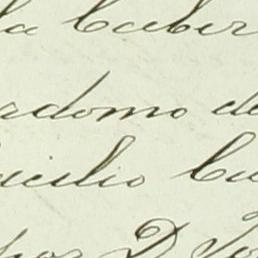 la Caber
ardomo de
cilio Cu
por D. Jo